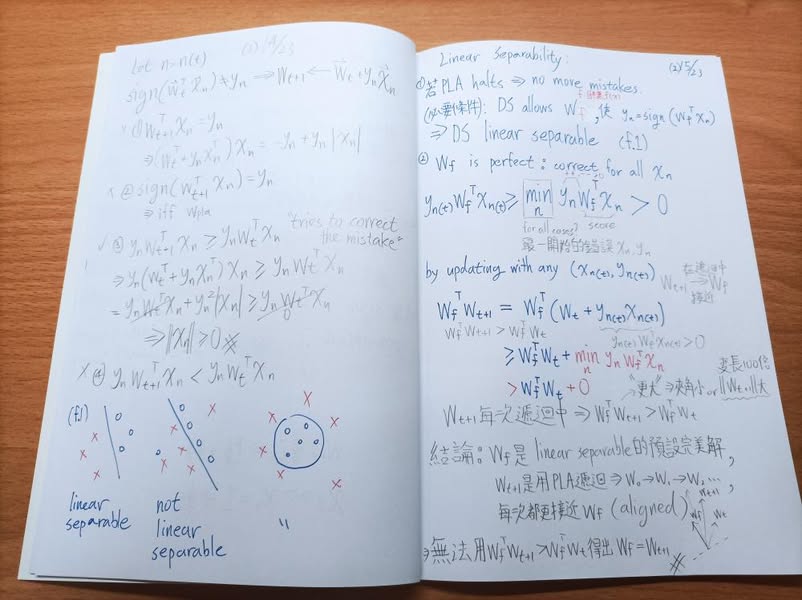 (1) 15/23
Let n = n(t)
sign(W_t^T X_n) ≠ y_n ⟹ W_{t+1} ← W_t + y_n X_n
① W_{t+1}^T X_n = y_n
⟹ (W_t^T + y_n X_n^T) X_n = -y_n + y_n |X_n|
× ② sign(W_{t+1}^T X_n) = y_n
⟹ iff W_PLA
✓ ③ y_n W_{t+1}^T X_n ≥ y_n W_t^T X_n
"tries to correct
the mistake"
⟹ y_n(W_t^T + y_n X_n^T) X_n ≥ y_n W_t^T X_n
= y_n W_t^T X_n + y_n² |X_n| ≥ y_n W_t^T X_n
0
⟹ ||X_n|| ≥ 0 ※
× ④ y_n W_{t+1}^T X_n < y_n W_t^T X_n
(f.1)
linear
separable
not
linear
separable
"
Linear Separability:
(2) 15/23
① 若PLA halts ⟹ no more mistakes.
(必要條件): DS allows W_f, 使 y_n = sign(W_f^T X_n)
⟹ DS linear separable (f.1)
② W_f is perfect: correct for all X_n
y_{n(t)} W_f^T X_{n(t)} ≥ min_n y_n W_f^T X_n > 0
for all cases?
score
最一開始的錯誤 X_n, y_n
by updating with any (X_{n(t)}, y_{n(t)})
在遞迴中
W_{t+1} → W_f
接近
W_f^T W_{t+1} = W_f^T (W_t + y_{n(t)} X_{n(t)})
W_f^T W_{t+1} > W_f^T W_t
y_{n(t)} W_f^T X_{n(t)} > 0
≥ W_f^T W_t + min_n y_n W_f^T X_n
變長100倍
> W_f^T W_t + 0
更大 ⟹ 夾角小 or ||W_{t+1}||大
W_{t+1} 每次遞迴中 ⟹ W_f^T W_{t+1} > W_f^T W_t
結論: W_f 是 linear separable 的預設完美解,
W_{t+1} 是用PLA遞迴 ⟹ W_0 → W_1 → W_2 ...,
每次都更接近 W_f (aligned)
W_{t+1}
W_f
W_t
⟹ 無法用 W_f^T W_{t+1} > W_f^T W_t 得出 W_f = W_{t+1} ※